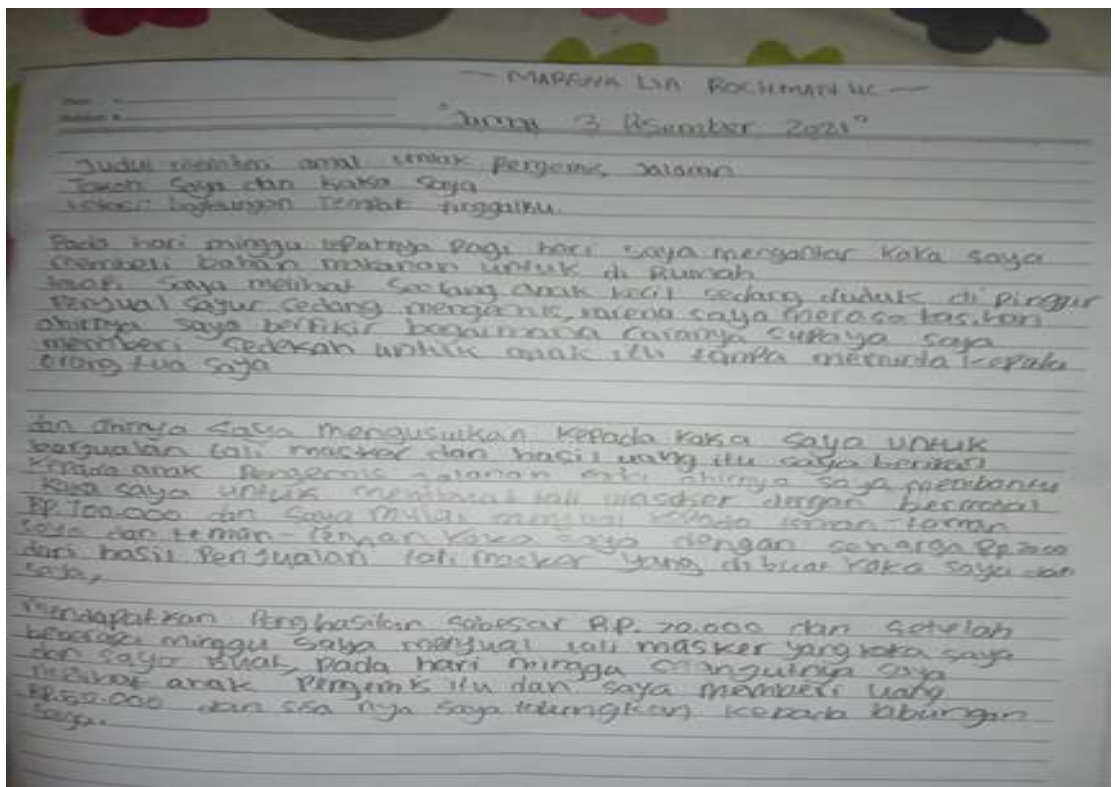 MARENA LIA ROCHMAN
3 Desember 2021"
Judul memberi amal untuk Pergemis Jalanan
Tokoh Saya dan Kaka Saya
Lokasi: lingkungan Tempat tinggalku
Pada hari minggu tepatnya Pagi hari saya mengantar kaka saya
membeli bahan makanan untuk di Rumah
saya melihat seorang anak kecil sedang duduk di pinggir
Penjual sayur sedang mengemis, karena saya merasa kasihan
ahirnya saya berfikir bagaimana caranya supaya saya
memberi sedekah untuk anak itu tanpa meminta kepada
orang tua saya
dan ahirnya saya mengusulkan kepada kaka saya untuk
berjualan tali masker dan hasil uang itu saya berikan
kepada anak Pengemis jalanan ahirnya saya membantu
kaka saya untuk membuat tali masker dengan bermodal
RP.100.000 dan saya mulai menjual kepada teman-teman
saya dan teman-teman kaka saya dengan seharga
dari hasil Penjualan tali masker yang dibuat kaka saya dan
saya,
mendapatkan Penghasilan sebesar RP. 70.000 dan setelah
beberapa minggu saya menjual tali masker yang kaka saya
dan saya buat, pada hari minggu saya
melihat anak Pengemis itu dan saya memberi uang
RP.50.000 dan sisa nya saya kepada tabungan
saya.